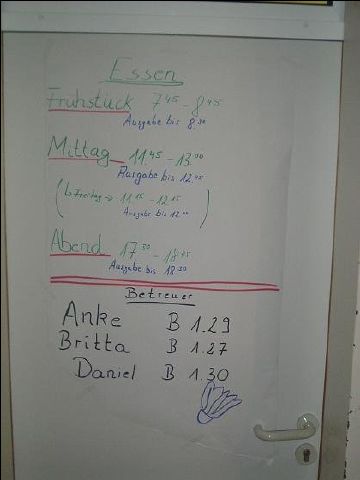 Essen
Frühstück 7⁴⁵ - 8⁴⁵
Ausgabe bis 8.30
Mittag 11.45 - 13.00
Ausgabe bis 12.45
(↳ Freitag → 11.15 - 12.15
Ausgabe bis 12.00)
Abend 17³⁰ - 18⁴⁵
Ausgabe bis 18.30
Betreuer
Anke B 1.29
Britta B 1.27
Daniel B 1.30